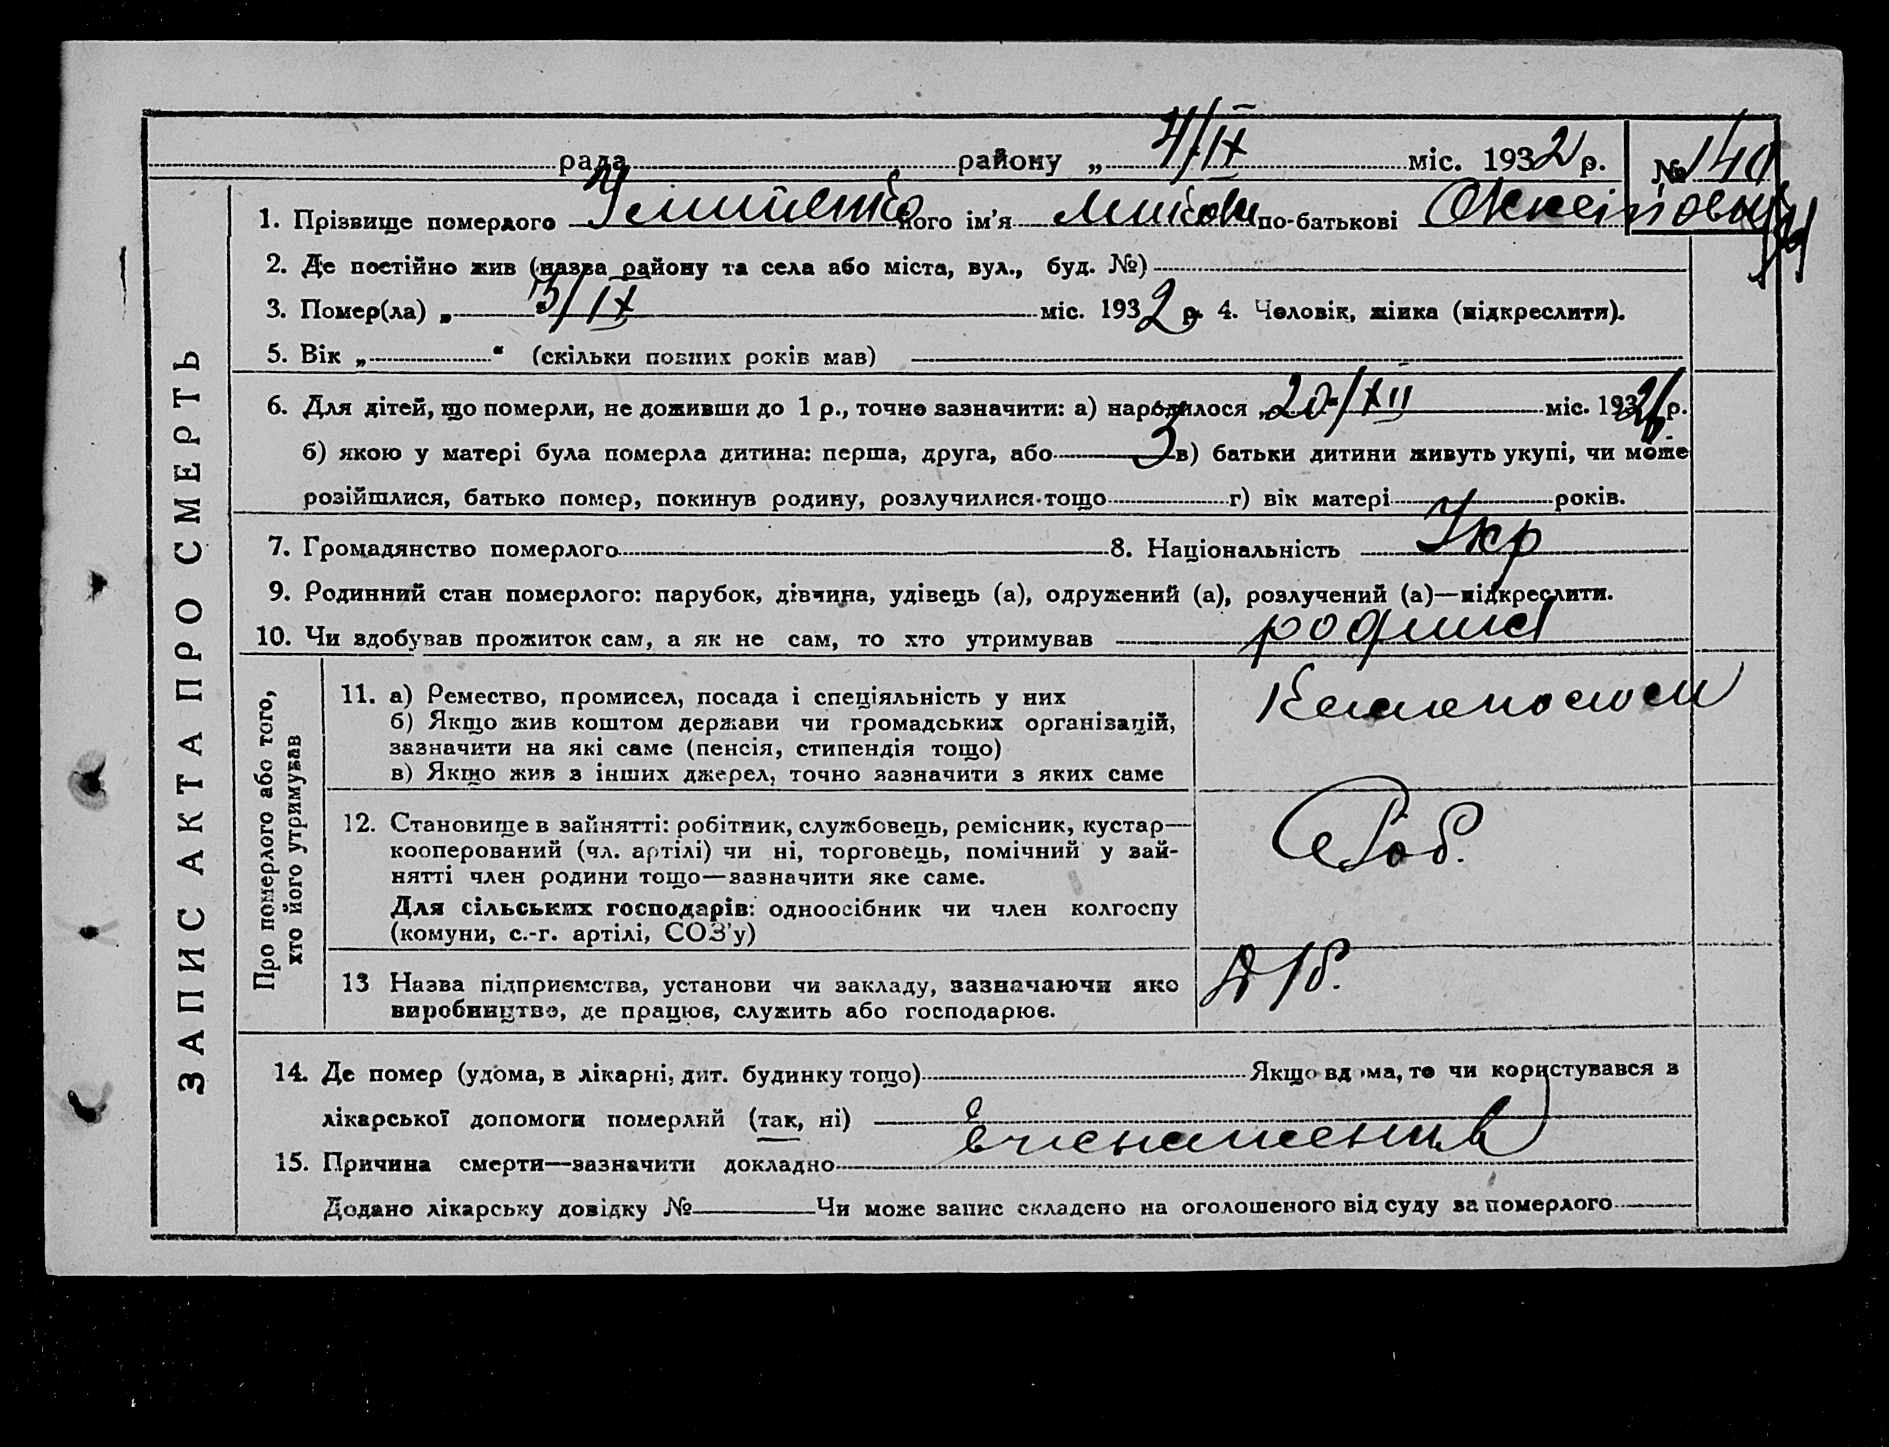 рада району „ 4/IX міс. 1932 р. № 140
1. Прізвище померлого його ім'я по-батькові
2. Де постійно жив (назва району та села або міста, вул., буд. №)
3. Помер(ла) „ 3/IX міс. 1932 р. 4. Чоловік, жінка (підкреслити).
5. Вік „ “ (скільки повних років мав)
6. Для дітей, що померли, не доживши до 1 р., точно зазначити: а) народилося „ 20/XII міс. 193 р.
б) якою у матері була померла дитина: перша, друга, або 3 в) батьки дитини живуть укупі, чи може
розійшлися, батько помер, покинув родину, розлучилися тощо г) вік матері років.
7. Громадянство померлого 8. Національність Укр
9. Родинний стан померлого: парубок, дівчина, удівець (а), одружений (а), розлучений (а)—підкреслити.
10. Чи здобував прожиток сам, а як не сам, то хто утримував родина
ЗАПИС АКТА ПРО СМЕРТЬ
Про померлого або того,
хто його утримував
11. а) Ремество, промисел, посада і спеціяльність у них
б) Якщо жив коштом держави чи громадських організацій,
зазначити на які саме (пенсія, стипендія тощо)
в) Якщо жив з інших джерел, точно зазначити з яких саме
12. Становище в зайнятті: робітник, службовець, ремісник, кустар—
кооперований (чл. артілі) чи ні, торговець, помічний у зай-
нятті член родини тощо—зазначити яке саме.
Для сільських господарів: одноосібник чи член колгоспу
(комуни, с.-г. артілі, СОЗ'у)
Роб.
13 Назва підприємства, установи чи закладу, зазначаючи яко
виробництво, де працює, служить або господарює.
14. Де помер (удома, в лікарні, дит. будинку тощо) Якщо вдома, то чи користувався з
лікарської допомоги померлий (так, ні)
15. Причина смерти—зазначити докладно
Додано лікарську довідку № Чи може запис складено на оголошеного від суду за померлого